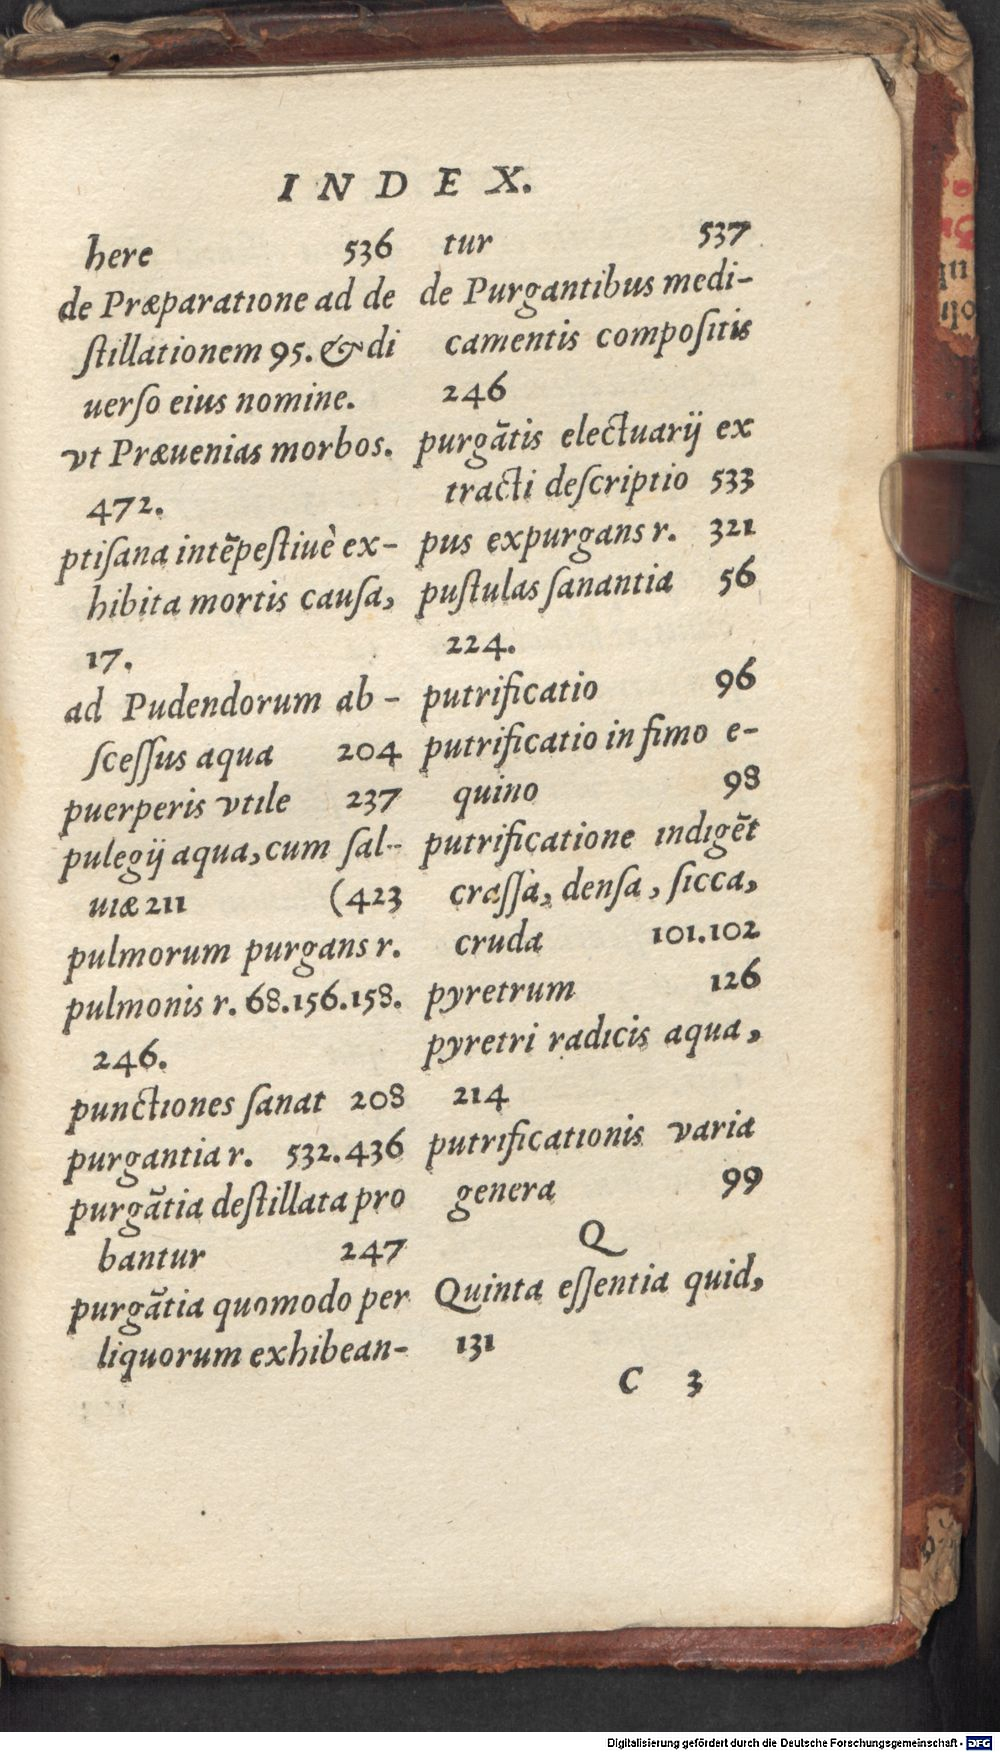 INDEX.
here 536
de Præparatione ad de
ſtillationem 95. & di
uerſo eius nomine.
vt Præuenias morbos.
472.
ptiſana intẽpeſtiuè ex-
hibita mortis cauſa,
17.
ad Pudendorum ab-
ſceſſus aqua 204
puerperis vtile 237
pulegij aqua, cum ſal-
uiæ 211 (423
pulmorum purgans r.
pulmonis r. 68.156.158.
246.
punctiones ſanat 208
purgantia r. 532.436
purgãtia deſtillata pro
bantur 247
purgãtia quomodo per
liquorum exhibean-
tur 537
de Purgantibus medi-
camentis compoſitis
246
purgãtis electuarij ex
tracti deſcriptio 533
pus expurgans r. 321
puſtulas ſanantia 56
224.
putrificatio 96
putrificatio in fimo e-
quino 98
putrificatione indigẽt
craſſa, denſa, ſicca,
cruda 101.102
pyretrum 126
pyretri radicis aqua,
214
putrificationis varia
genera 99
Q
Quinta eſſentia quid,
131
C 3
Digitalisierung gefördert durch die Deutsche Forschungsgemeinschaft - DFG